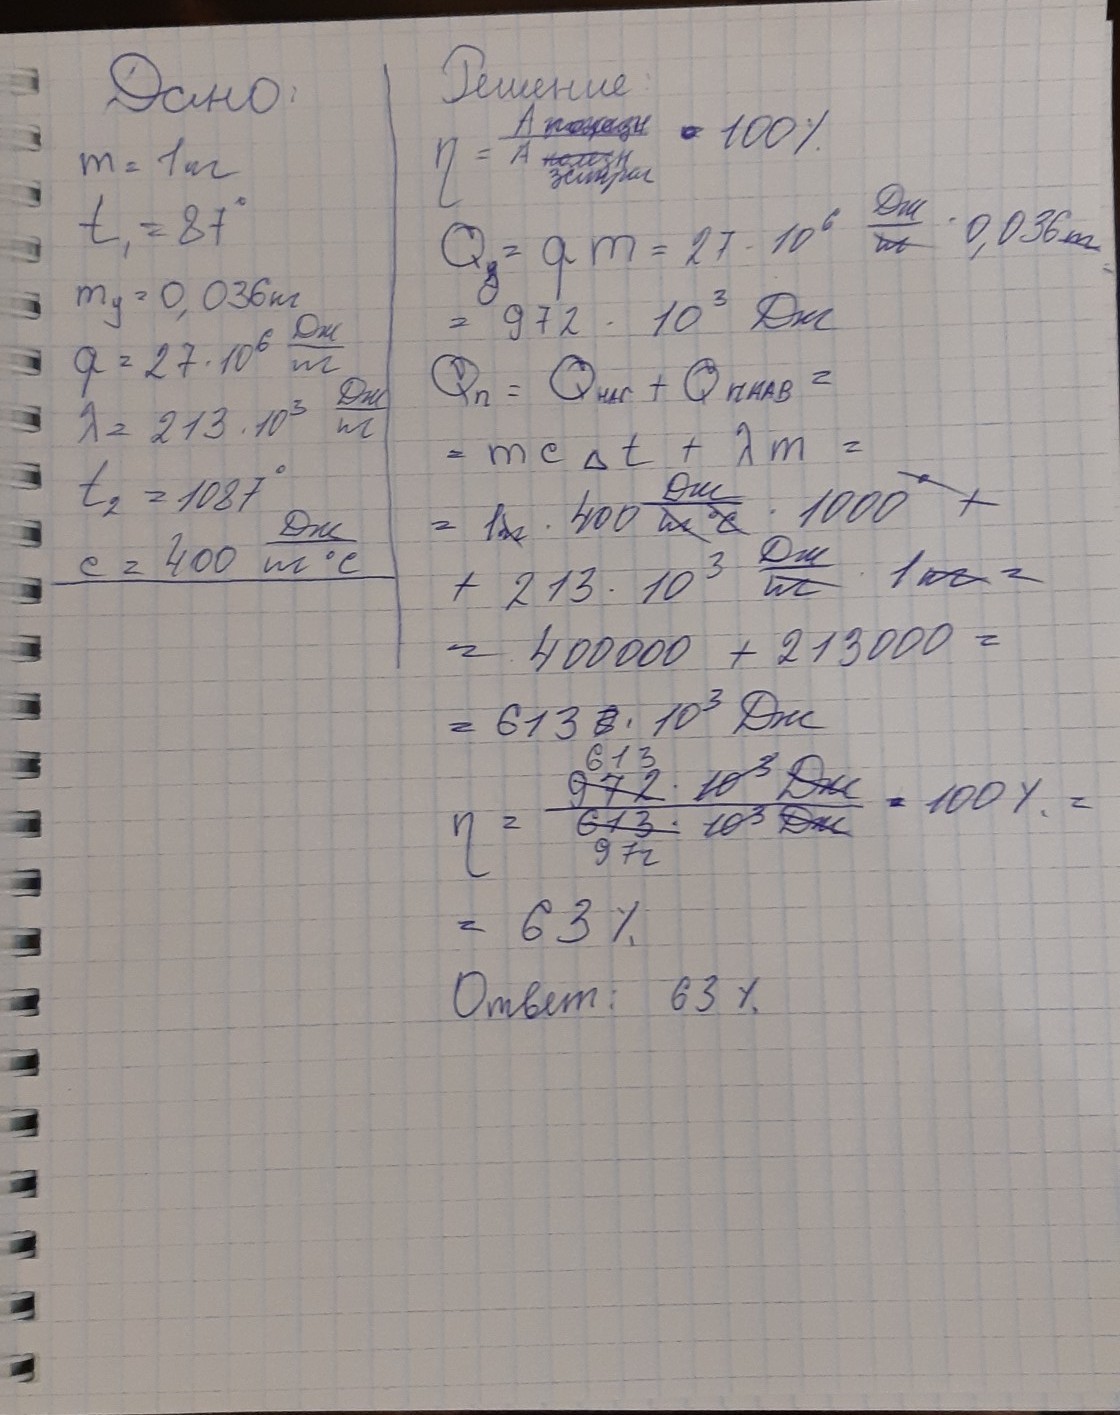 Дано:
m = 1кг
t₁ = 87°
mу = 0,036кг
q = 27·10⁶ Дж/кг
λ = 213·10³ Дж/кг
t₂ = 1087°
c = 400 Дж/кг°C
Решение:
η = A / A затрач · 100%
Qу = qm = 27·10⁶ Дж/кг · 0,036кг =
= 972·10³ Дж
Qп = Qнаг + Qплав =
= mcΔt + λm =
= 1кг · 400 Дж/кг°C · 1000° +
+ 213·10³ Дж/кг · 1кг =
= 400000 + 213000 =
= 613·10³ Дж
613
η = 972·10³ Дж / 613·10³ Дж · 100% =
972
= 63%
Ответ: 63%